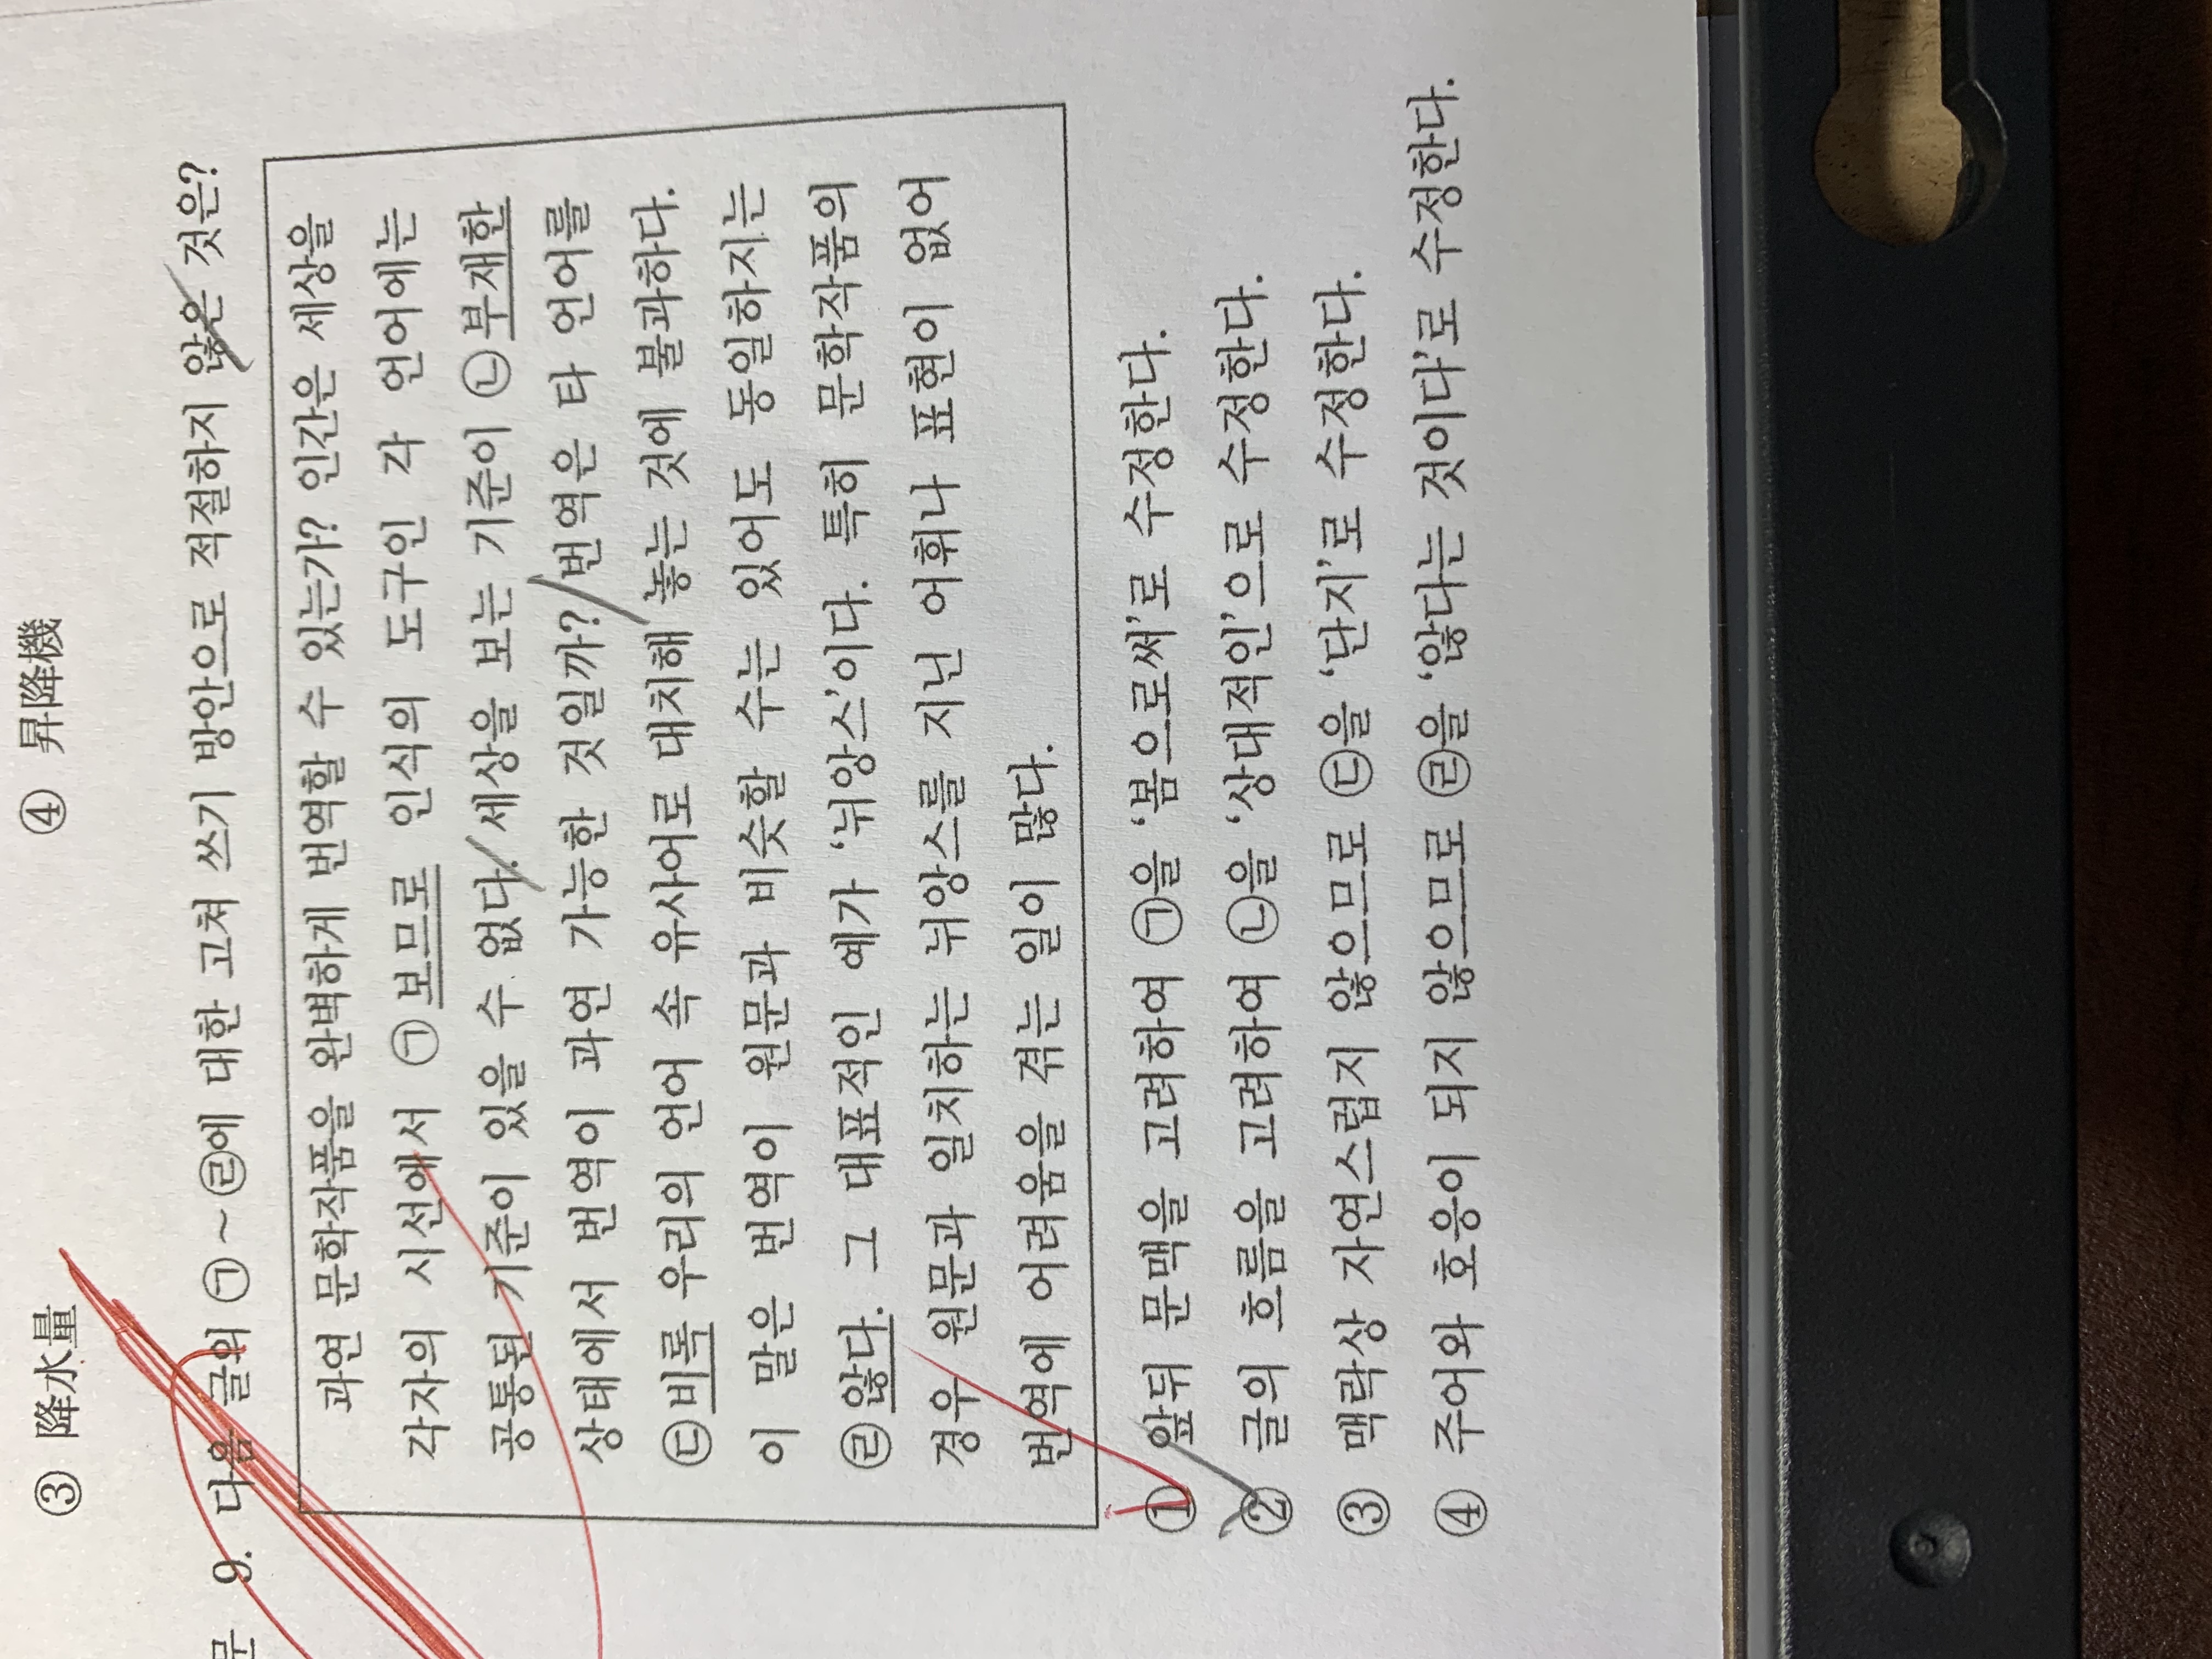 ③ 降水量 ④ 昇降機
문 9. 다음 글의 ㉠~㉣에 대한 고쳐 쓰기 방안으로 적절하지 않은 것은?
과연 문학작품을 완벽하게 번역할 수 있는가? 인간은 세상을
각자의 시선에서 ㉠보므로 인식의 도구인 각 언어에는
공통된 기준이 있을 수 없다. 세상을 보는 기준이 ㉡부재한
상태에서 번역이 과연 가능한 것일까? 번역은 타 언어를
㉢비록 우리의 언어 속 유사어로 대치해 놓는 것에 불과하다.
이 말은 번역이 원문과 비슷할 수는 있어도 동일하지는
㉣않다. 그 대표적인 예가 ‘뉘앙스’이다. 특히 문학작품의
경우 원문과 일치하는 뉘앙스를 지닌 어휘나 표현이 없어
번역에 어려움을 겪는 일이 많다.
① 앞뒤 문맥을 고려하여 ㉠을 ‘봄으로써’로 수정한다.
② 글의 흐름을 고려하여 ㉡을 ‘상대적인’으로 수정한다.
③ 맥락상 자연스럽지 않으므로 ㉢을 ‘단지’로 수정한다.
④ 주어와 호응이 되지 않으므로 ㉣을 ‘않다는 것이다’로 수정한다.